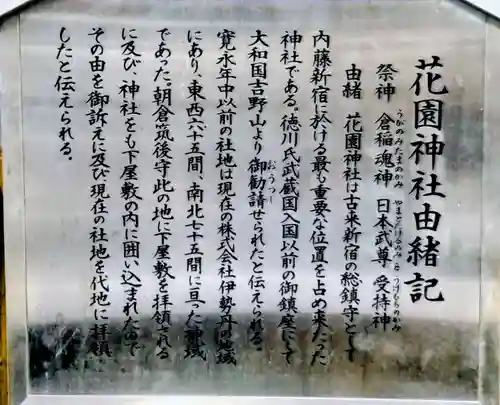 花園神社由緒記
祭神 倉稲魂神 日本武尊 受持神
うかのみたまのかみ やまとたけるのみこと うけもちのかみ
由緒 花園神社は古来新宿の総鎮守として
内藤新宿に於ける最も重要な位置を占め来たった
神社である。徳川氏武蔵国入国以前の御鎮座にして
大和国吉野山より御勧請せられたと伝えられる。
おうつし
寛永年中以前の社地は現在の株式会社伊勢丹の地域
にあり、東西六十五間、南北七十五間に亘った神域
であった。朝倉筑後守此の地に下屋敷を拝領される
に及び、神社をも下屋敷の内に囲い込まれたので
その由を御訴えに及び現在の社地を代地に拝領
したと伝えられる。